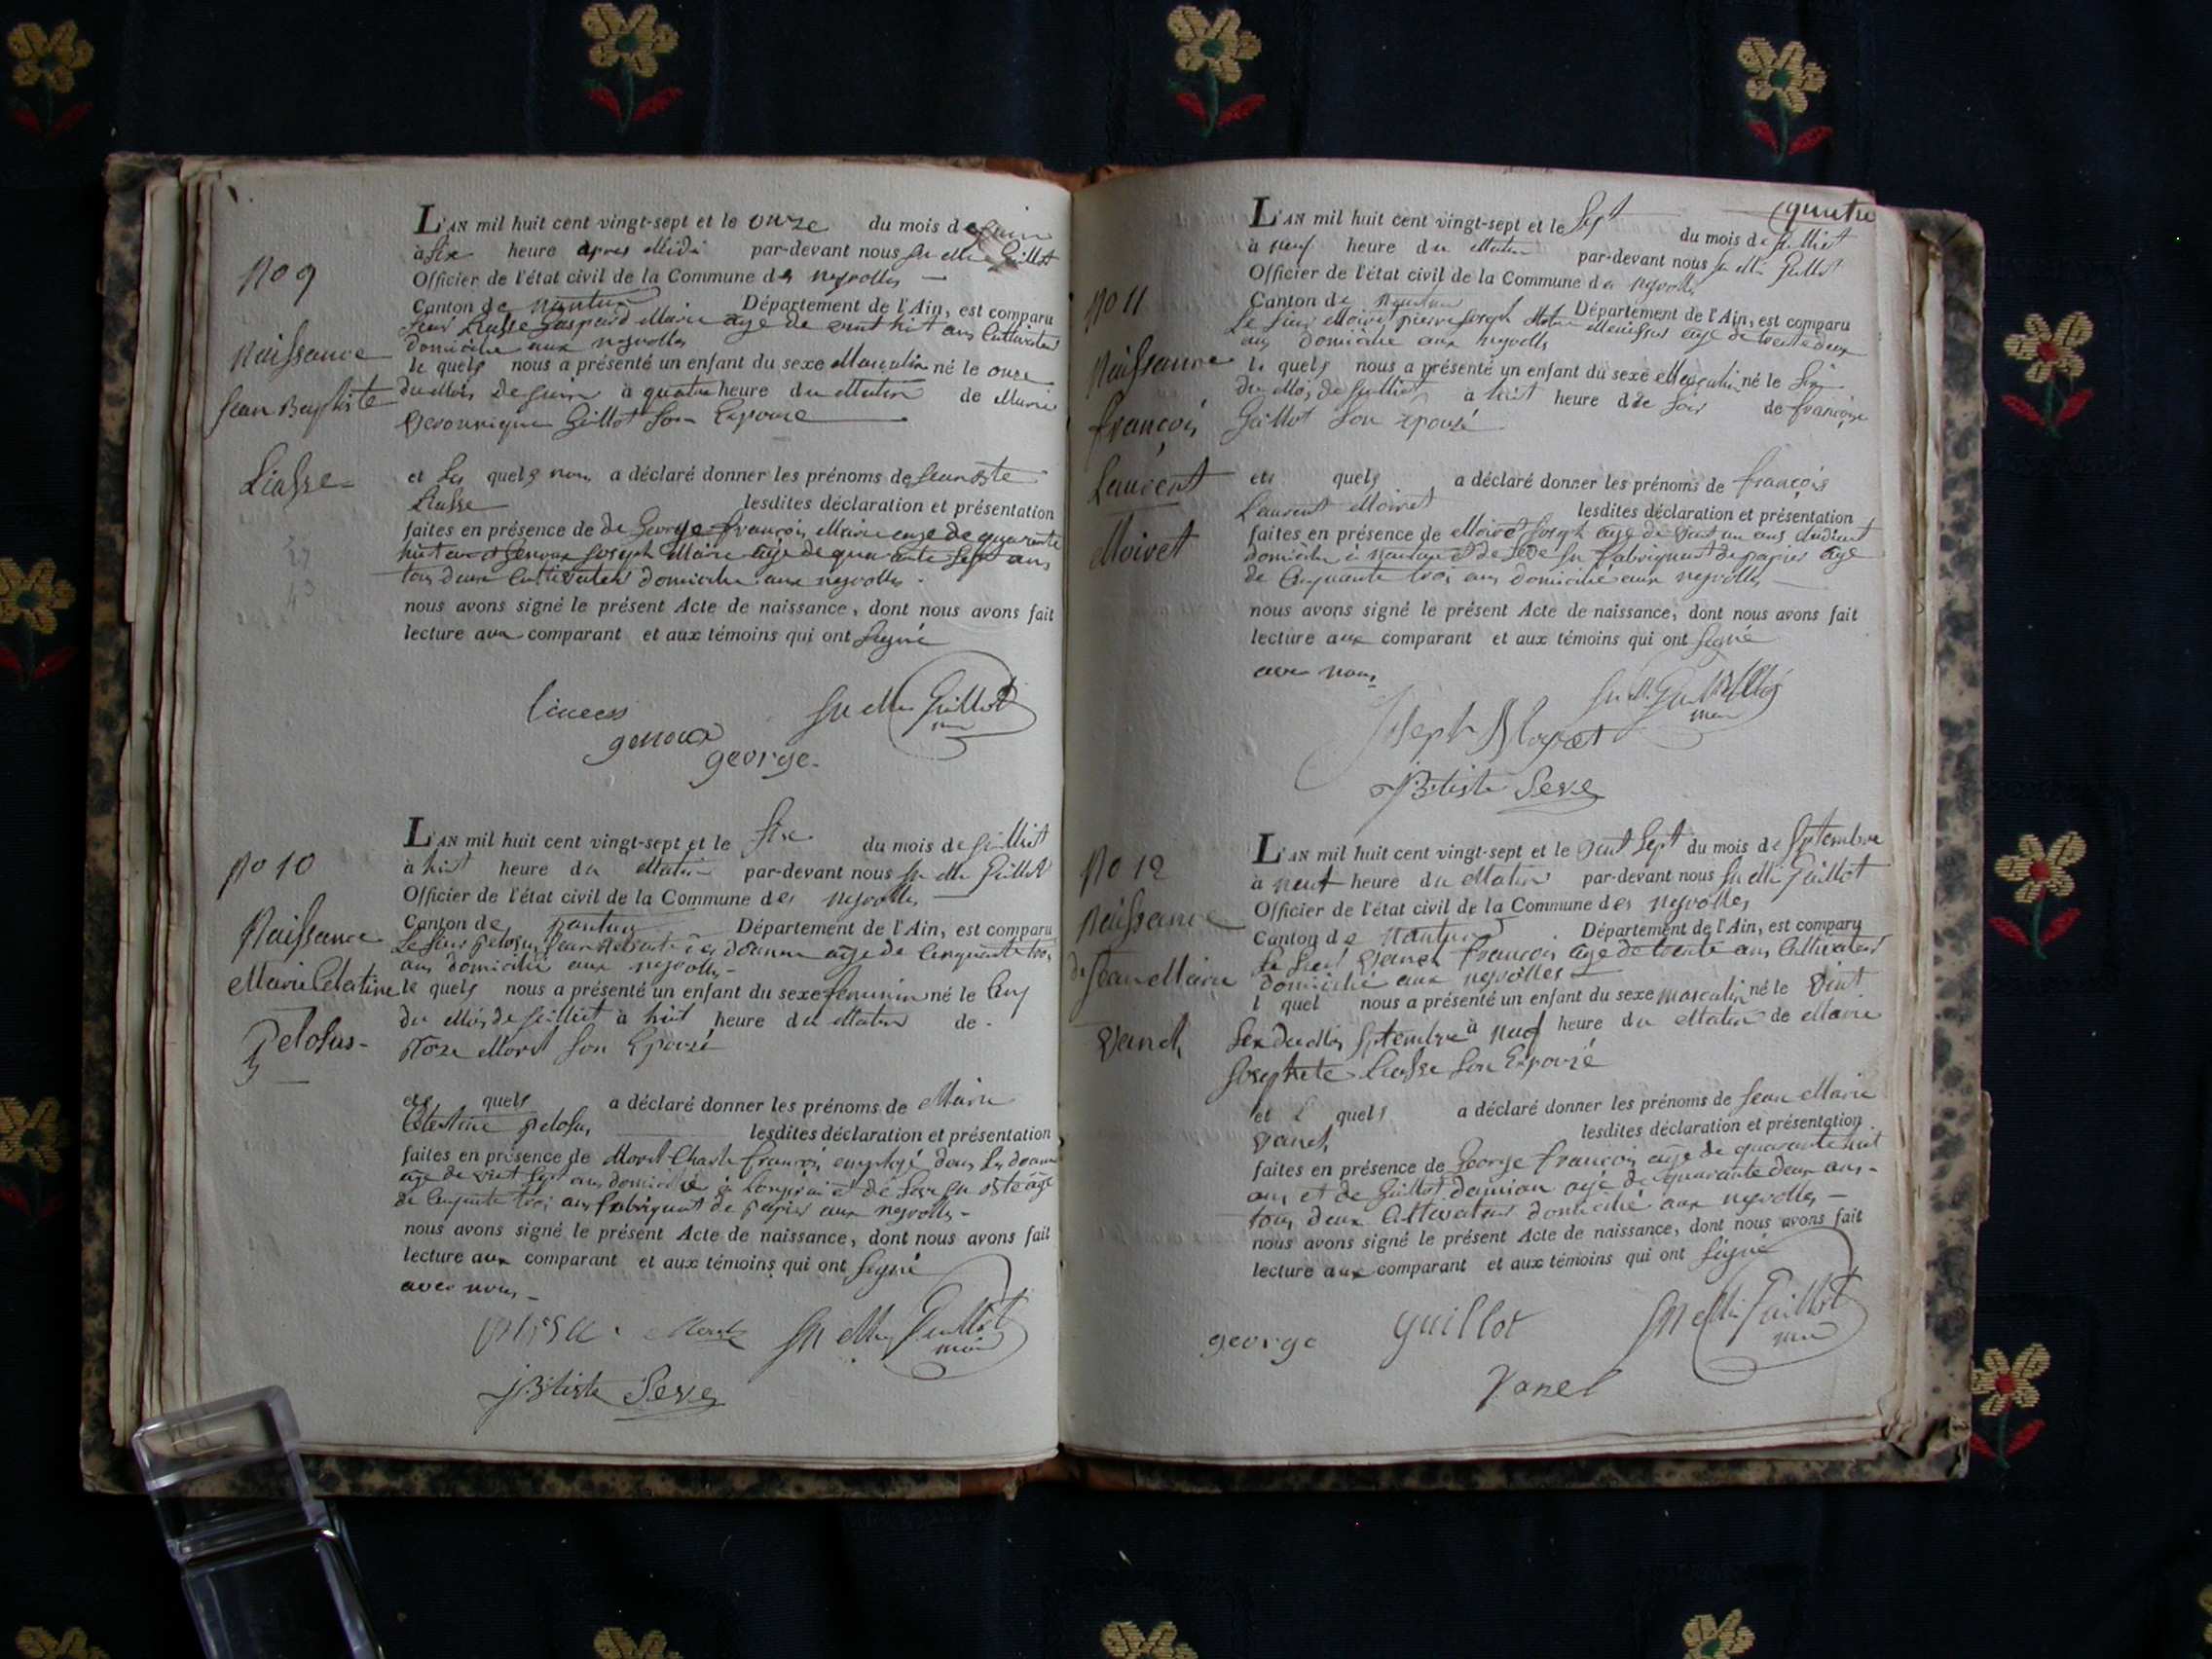 No 9
Naissance
Jean Baptiste
Liasse
L'AN mil huit cent vingt-sept et le onze du mois de juin
à six heure apres Midi par-devant nous Jn Mie Guillot
Officier de l'état civil de la Commune des neyrolles
Canton de nantua Département de l'Ain, est comparu
Liasse Gaspard Marie age de vint huit ans Cultivateur
domicilie aux neyrolles
le quels nous a présenté un enfant du sexe Masculin né le onze
du Mois de juin à quatre heure du Matin de Marie
veronnique Guillot Son Epouse
et les quels nous a déclaré donner les prénoms de Jean Bte
Liasse lesdites déclaration et présentation
faites en présence de de George françois Marie age de quarante
huit ans et Genoux Joseph Marie age de quarante Sept ans
tous deux Cultivateur domicilie aux neyrolles
nous avons signé le présent Acte de naissance, dont nous avons fait
lecture aux comparant et aux témoins qui ont Signé
genoux
george
Jn Mie Guillot
No 10
Naissance
Marie Celestine
Pelosus
L'AN mil huit cent vingt-sept et le Six du mois de juilliet
à huit heure du Matin par-devant nous Jn Mie Guillot
Officier de l'état civil de la Commune des neyrolles
Canton de nantua Département de l'Ain, est comparu
Le Sieur pelosus age de Cinquante trois
ans domicilié aux neyrolles
le quels nous a présenté un enfant du sexe feminin né le Cinq
du Mois de juilliet à huit heure du Matin de
Roze Morel Son Epouse
et quels a déclaré donner les prénoms de Marie
Celestine pelosus lesdites déclaration et présentation
faites en présence de Morel Charle françois employé dans les douane
age de vint Sept ans domicilié à et de Seve Jn Bte age
de Cinquante trois ans fabriquant de papier aux neyrolles
nous avons signé le présent Acte de naissance, dont nous avons fait
lecture aux comparant et aux témoins qui ont Signé
avec nous
Morel Jn Mie Guillot
JBtiste Seve
quatre
No 11
Naissance
françois
Laurent
Moiret
L'AN mil huit cent vingt-sept et le Sept du mois de juilliet
à neuf heure du Matin par-devant nous Jn Mie Guillot
Officier de l'état civil de la Commune des neyrolles
Canton de nantua Département de l'Ain, est comparu
Le Sieur Moiret pierre joseph age de trente deux
ans domicilie aux neyrolles
le quels nous a présenté un enfant du sexe Masculin né le Six
du Mois de juilliet à huit heure du Soir de françoise
Guillot Son epouse
et quels a déclaré donner les prénoms de françois
Laurent Moiret lesdites déclaration et présentation
faites en présence de Moiret joseph age de vint un ans
domicilie à nantua et de Seve Jn fabriquant de papier age
de Cinquante trois ans domicilié aux neyrolles
nous avons signé le présent Acte de naissance, dont nous avons fait
lecture aux comparant et aux témoins qui ont Signé
avec nous
Jn M Guillot
Joseph Moyret
JBtiste Seve
No 12
Naissance
de Jean Marie
Vanel
L'AN mil huit cent vingt-sept et le vint Sept du mois de Septembre
à neuf heure du Matin par-devant nous Jn Mie Guillot
Officier de l'état civil de la Commune des neyrolles
Canton de nantua Département de l'Ain, est comparu
Le Sieur Vanel françois age de trente ans Cultivateur
domicilié aux neyrolles
l quel nous a présenté un enfant du sexe masculin né le vint
Sex du Mois Septembre à neuf heure du Matin de Marie
josephete Liasse Son Epouse
et l quels a déclaré donner les prénoms de Jean Marie
Vanel lesdites déclaration et présentation
faites en présence de George françois age de quarante huit
ans et de Guillot damian age de quarante deux ans
tous deux Cultivateur domicilié aux neyrolles
nous avons signé le présent Acte de naissance, dont nous avons fait
lecture aux comparant et aux témoins qui ont Signé
george guillot Jn Mie Guillot
Vanel